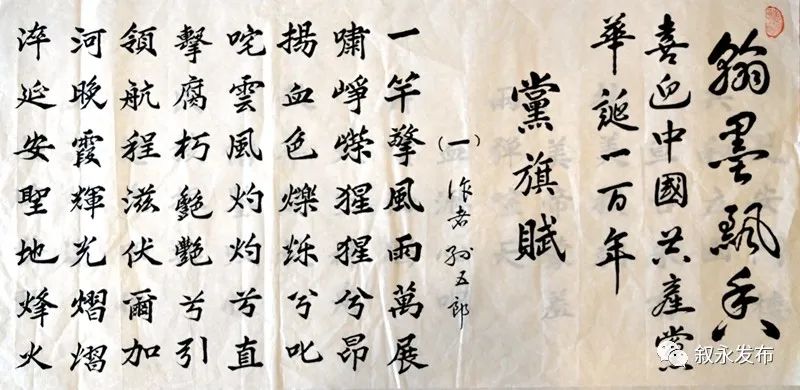 翰墨飄香
喜迎中國共產黨
華誕一百年
黨旗賦
(一) 作者 孙五郎
一竿擎風雨萬展
嘯崢嶸猩猩兮昂
揚血色爍烁兮叱
咤雲風灼灼兮直
擊腐朽艷艷兮引
領航程滋伏爾加
河晚霞輝光熠熠
淬延安聖地烽火
叙永发布